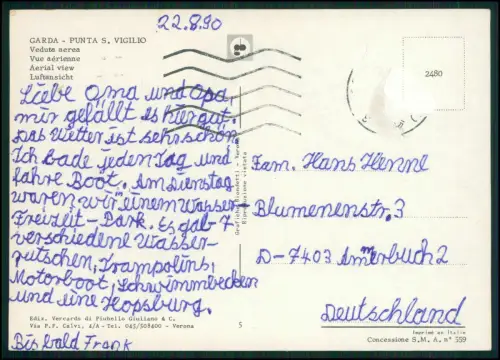 22.8.90
GARDA - PUNTA S. VIGILIO
Veduta aerea
Vue aérienne
Aerial view
Luftansicht
2480
Liebe Oma und Opa,
mir gefällt es hier gut.
Das Wetter ist sehr schön.
Ich bade jeden Tag und
fahre Boot. Am Dienstag
waren wir einem Wasser-
Freizeit-Park. Es gab 7
verschiedene Wasser-
rutschen, Trampolins,
Motorboot, Schwimmbecken
und eine Hopsburg.
Bis bald Frank
Fam. Hans Henne
Blumenenstr. 3
D-7403 Ammerbuch 2
Deutschland
Riproduzione vietata
Ediz. Vercardo di Piubello Giuliano & C.
Via P.F. Calvi, 4/A - Tel. 045/508400 - Verona
5
Imprimé en Italie
Concessione S.M.A. n° 559